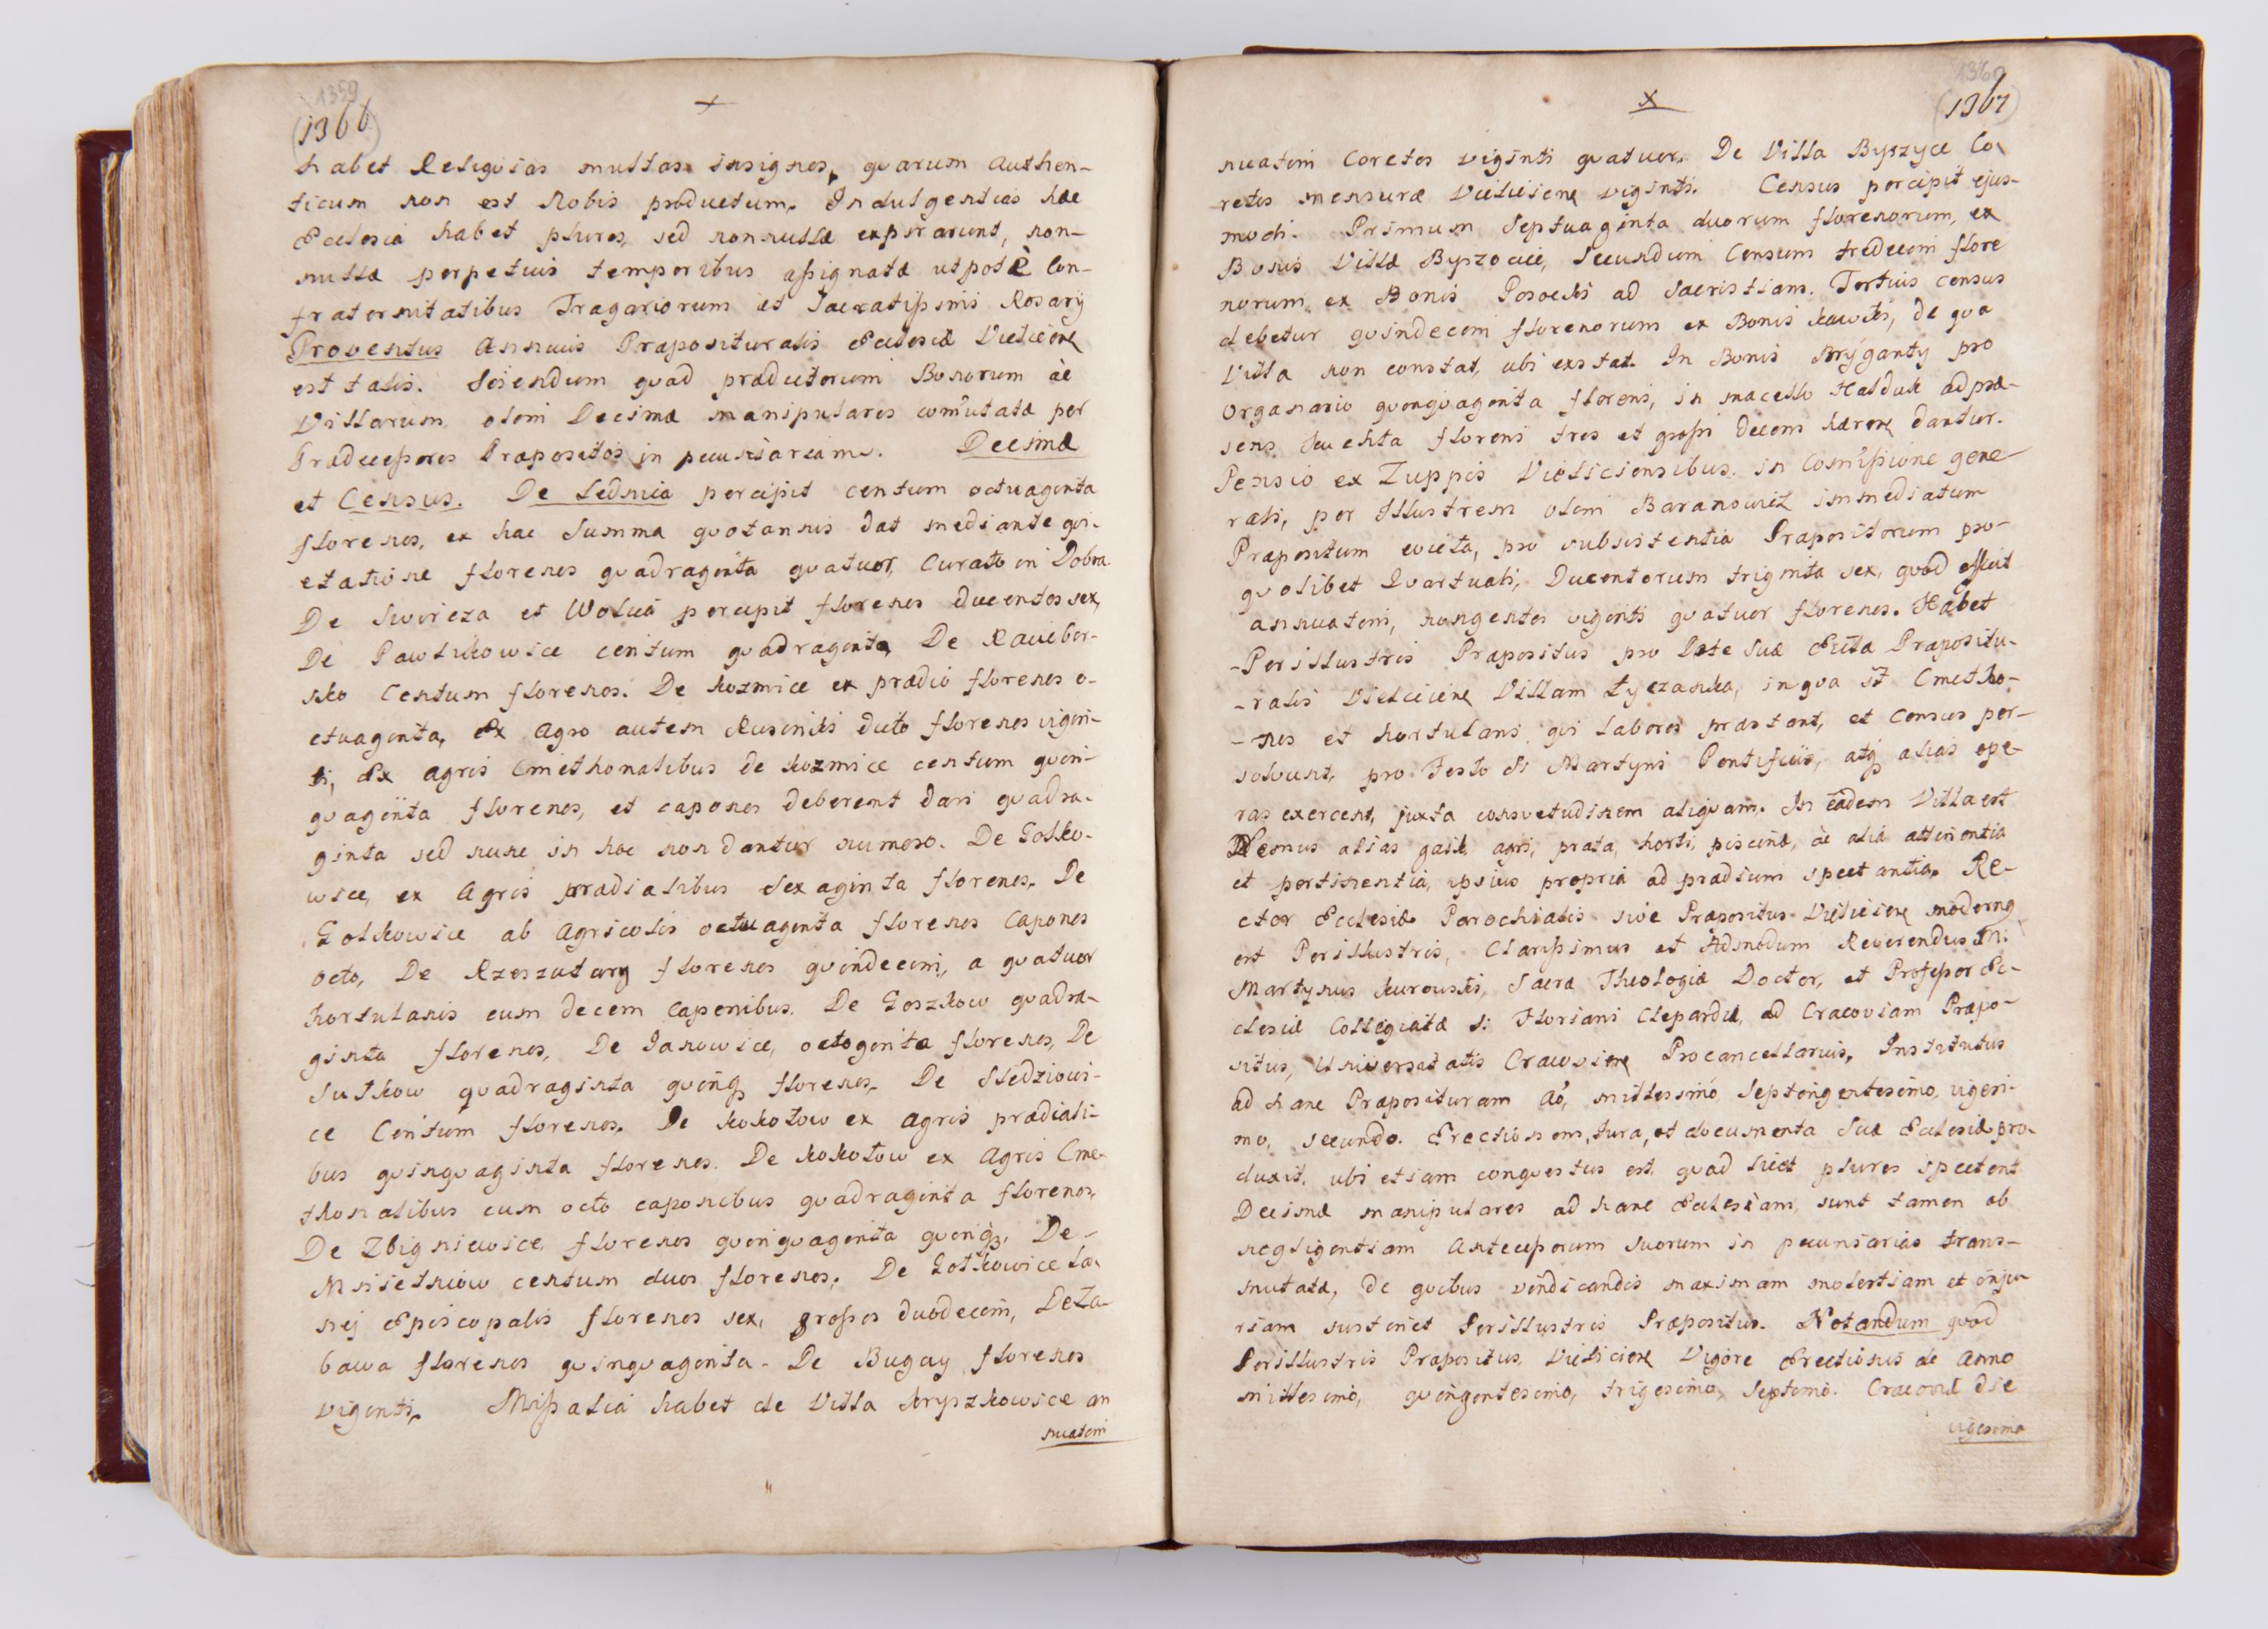 1359
(1366)
+
habet Reliquias multas insignes, quarum Authen-
ticum non est Nobis productum. Indulgentias haec
Ecclesia habet plures, sed nonnullæ expirarunt, non-
nullæ perpetuis temporibus assignatæ utpotè Con-
fraternitatibus Tragariorum et Sacratissimi Rosarij
Proventus Annuus Præposituralis Ecclesiæ Vieliciens
est talis. Sciendum quod prædictorum Bonorum ac
Villarum olim Decimæ manipulares com̃utatæ per
Prædecessores Præpositos in pecuniariam. Decimæ
et Census. De Lednica percipit centum octuaginta
florenos, ex hac Summa quotannis dat mediante qui-
etatione florenos quadraginta quatuor, Curato in Dobra.
De Swireza et Wolica percipit florenos ducentos sex,
De Pawlikowice centum quadraginta, De Raciebor-
sko Centum florenos. De Kozmice ex prædio florenos o-
ctuaginta, Ex Agro autem Rusinki dicto florenos vigin-
ti, Ex agris Cmethonalibus de Kozmice centum quin-
quaginta florenos, et capones deberent dari quadra-
ginta sed nunc in hoc non dantur numero. De Golko-
wice, ex Agris prædialibus Sexaginta florenos. De
Golkowice ab Agricolis octuaginta florenos Capones
octo, De Rzeszutary florenos quindecim, a quatuor
hortulanis cum decem Caponibus. De Goszkow quadra-
ginta florenos, De Janowice, octoginta florenos, De
Sulkow quadraginta quinq; florenos. De Sledziowi-
ce Centum florenos. De Kokotow ex Agris prædiali-
bus quinquaginta florenos. De Kokotow ex Agris Cme-
thonalibus cum octo caponibus quadraginta florenos.
De Zbigniewice, florenos quinquaginta quinq;. De
Mnietniow centum duos florenos. De Golkowice La-
nej Episcopalis florenos sex, grossos duodecim, De Za-
bawa florenos quinquaginta. De Bugay florenos
viginti. Missalia habet de Villa Kryszkowice an
nuatim
1360
(1367)
x
nuatim Coretos viginti quatuor. De Villa Byszyce Co-
retos mensuræ Vieliciens viginti. Census percipit ejus-
modi. Primum Septuaginta duorum florenorum, ex
Bonis Villæ Byszocice, Secundum Censum tredecim flore
norum, ex Bonis Posoecki ad Sacristiam. Tertius census
debetur quindecim florenorum ex Bonis Kawki, de qua
Villa non constat, ubi exstat. In Bonis Brÿganty pro
Organario quinquaginta floreni, in macello Halduk ad præ-
sens Suchta floreni tres et grossi decem hæren dantur.
Pensio ex Zuppis Vieliciensibus. in Com̃issione gene-
rali, per Illustrem olim Baranowicz immediatum
Præpositum evicta, pro subsistentia Præpositorum pro-
quolibet Quartuali, Ducentorum triginta sex, quod efficit
annuatim, nongentos viginti quatuor florenos. Habet
-Perillustris Præpositus pro Dote Suæ Ecclæ Præpositu-
-ralis Vieliciens Villam Łyczanka, in qua st̃ Cmetho-
-nes et hortulani qui labores præstant, et Census per-
solvunt, pro Festo Si Martyni Pontificis, atq; alias ope-
ras exercent, juxta consvetudinem aliquam. In eadem Villa est
Nemus alias gaik, agri, prata, horti, piscinæ, ac alia attinentia
et pertinentia, ipsius propria ad prædium spectantia. Re-
ctor Ecclesiæ Parochialis sive Præpositus Vieliciens modernq
est Perillustris, Clarissimus et Admodum Reverendus Mi
Martynus Kurowski, Sacræ Theologiæ Doctor, et Professor Ec-
clesiæ Collegiatæ Si Floriani Clepardiæ, ad Cracoviam Præpo-
situs, Universitatis Cracovien Procancellarius, Institutus
ad hanc Præposituram Aò, millessimò Septingentesimo, vigesi-
mo, secundo. Erectionem, jura, et documenta Suæ Ecclesiæ pro-
duxit. ubi etiam conquestus est, quod licet plures spectent
Decimæ manipulares ad hanc Ecclesiam, sunt tamen ob
negligentiam Antecessorum Suorum in pecuniarias trans-
mutatæ, de quibus vindicandis maximam molestiam et inju-
riam sustinet Perillustris Præpositus. Notandum quod
Perillustris Præpositus Vieliciens Vigore Erectionis de Anno
millesimò, quingentesimo, trigesimo, Septimò. Cracoviæ die
vigesima